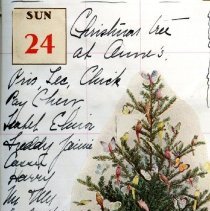 SUN
24
Christmas tree
at Anne's.
Pris, Lee, Chuck
Ray Cherr
Isabel Elinor
Freddy Jamie
Carrie
Harris
Mr.